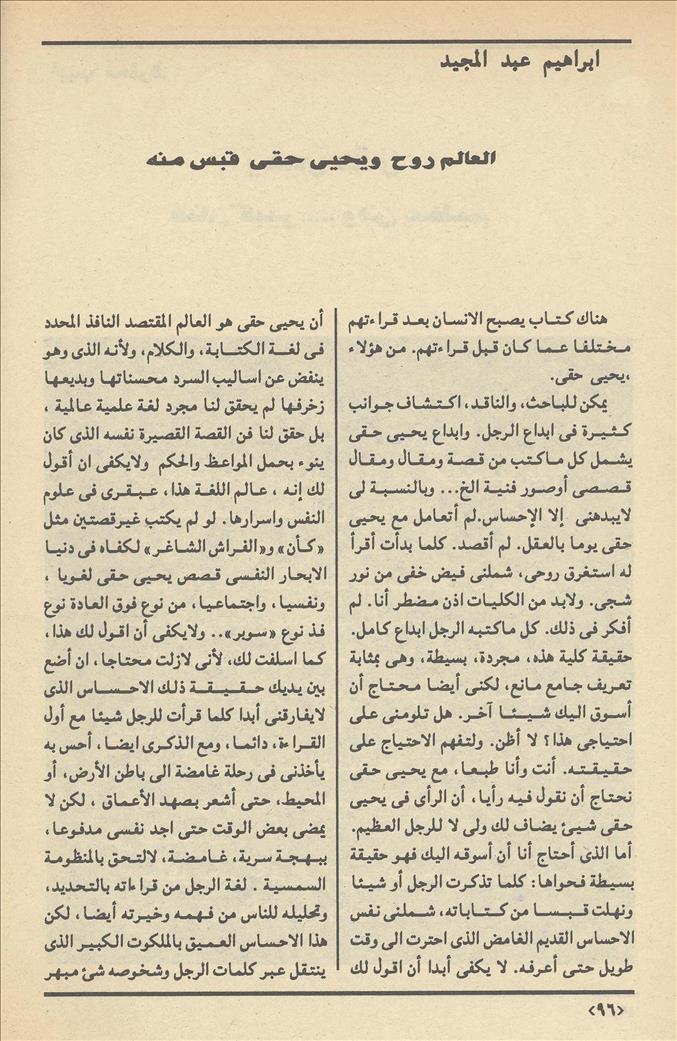 ابراهيم عبد المجيد
العالم روح ويحيى حقى قبس منه
هناك كتاب يصبح الانسان بعد قراءتهم
مختلفا عما كان قبل قراءتهم. من هؤلاء
،يحيى حقى.
يمكن للباحث، والناقد، اكتشاف جوانب
كثيرة فى ابداع الرجل. وابداع يحيى حقى
يشمل كل ماكتب من قصة ومقال ومقال
قصصى أوصور فنية الخ... وبالنسبة لى
لايبدهنى إلا الإحساس.لم أتعامل مع يحيى
حقى يوما بالعقل. لم أقصد. كلما بدأت أقرأ
له استغرق روحى، شملنى فيض خفى من نور
شجى. ولابد من الكليات اذن مضطر أنا. لم
أفكر فى ذلك. كل ماكتبه الرجل ابداع كامل.
حقيقة كلية هذه، مجردة، بسيطة، وهى بمثابة
تعريف جامع مانع، لكنى أيضا محتاج أن
أسوق اليك شيئا آخر. هل تلومنى على
احتياجى هذا؟ لا أظن. ولتفهم الاحتياج على
حقيقته. أنت وأنا طبعا، مع يحيى حقى
نحتاج أن نقول فيه رأيا، أن الرأى فى يحيى
حقى شيئ يضاف لك ولى لا للرجل العظيم.
أما الذى أحتاج أنا أن أسوقه اليك فهو حقيقة
بسيطة فحواها: كلما تذكرت الرجل أو شيئا
ونهلت قبسا من كتاباته، شملنى نفس
الاحساس القديم الغامض الذى احترت الى وقت
طويل حتى أعرفه. لا يكفى أبدا أن اقول لك
أن يحيى حقى هو العالم المقتصد النافذ المحدد
فى لغة الكتابة، والكلام، ولأنه الذى وهو
ينفض عن اساليب السرد محسناتها وبديعها
زخرفها لم يحقق لنا مجرد لغة علمية عالمية ،
بل حقق لنا فن القصة القصيرة نفسه الذى كان
ينوء بحمل المواعظ والحكم ولايكفى ان أقول
لك إنه ، عالم اللغة هذا، عبقرى فى علوم
النفس واسرارها. لو لم يكتب غيرقصتين مثل
«كأن» و«الفراش الشاغر» لكفاه فى دنيا
الابحار النفسى قصص يحيى حقى لغويا ،
ونفسيا ، واجتماعيا ، من نوع فوق العادة نوع
فذ نوع «سوبر».. ولايكفى أن اقول لك هذا،
كما اسلفت لك، لأنى لازلت محتاجا، ان أضع
بين يديك حقيقة ذلك الاحساس الذى
لايفارقنى أبدا كلما قرأت للرجل شيئا مع أول
القراءة، دائما، ومع الذكرى ايضا، أحس به
يأخذنى فى رحلة غامضة الى باطن الأرض، أو
المحيط، حتى أشعر بصهد الأعماق ، لكن لا
يمضى بعض الوقت حتى اجد نفسى مدفوعا،
ببهجة سرية، غامضة، لالتحق بالمنظومة
السمسية . لغة الرجل من قراءاته بالتحديد،
وتحليله للناس من فهمه وخيرته أيضا ، لكن
هذا الاحساس العميق بالملكوت الكبير الذى
ينتقل عبر كلمات الرجل وشخوصه شئ مبهر
<٩٦>